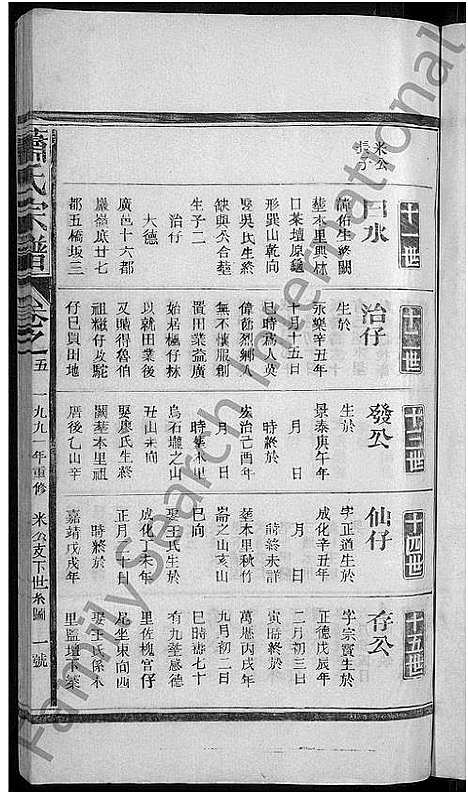 蕭氏宗譜
卷之五
一九九一年重修
米公支下世系圖
一號
米公
長子
十一世
日水
葬本里與林
形巽山乾向
娶吳氏生終
缺與公合葬
生子二
治仔
大德
廣邑十六都
巖嶺底廿七
都五橋坂三
十二世
治仔
生於
永樂辛丑年
十月十五日
巳時為人英
偉節烈鄉人
無不懷服創
置田業益廣
始居楓仔林
以就田業後
又賦得魯伯
祖糍仔皮駝
仔巳買田地
十三世
發公
生於
景泰庚午年
月
日
時終於
弘治己酉年
月
日
時葬本里
烏石壠之山
丑山未向
娶廖氏生終
闕葬本里祖
厝後乙山辛
十四世
仙仔
字正道生於
成化辛丑年
月
日
時終未詳
葬本里秋竹
崙之山亥山
巳向
娶王氏生於
成化丁未年
正月二十日
時終於
嘉靖戊戌年
十五世
存公
字宗賓生於
正德戊辰年
二月初三日
寅時終於
萬曆丙戌年
九月初二日
巳時壽七十
有九葬感德
里佐槐宮仔
尾坐東向西
娶王氏係本
里監壇下葉